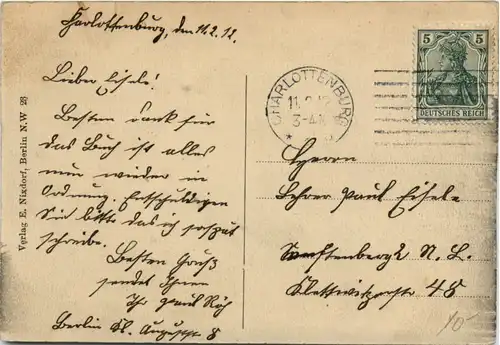 Charlottenburg, den 11.2.12.
Lieber Eisele!
Besten Dank für
das Buch ist alles
nun wieder in
Ordnung. Entschuldigen
Sie bitte das ich so spät
schreibe.
Besten Gruß
sendet Ihnen
Ihr Paul
Berlin Kl. Auguststr 8
Verlag E. Nixdorf, Berlin N.W 23
CHARLOTTENBURG
11.2.12
3-4
5 5
DEUTSCHES REICH
Herrn
Lehrer Paul Eisele
Senftenberg N. L.
Klettwitzerstr 45
10-